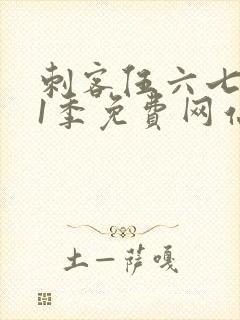 刺客伍六七
1季免費网
土一萨嘎